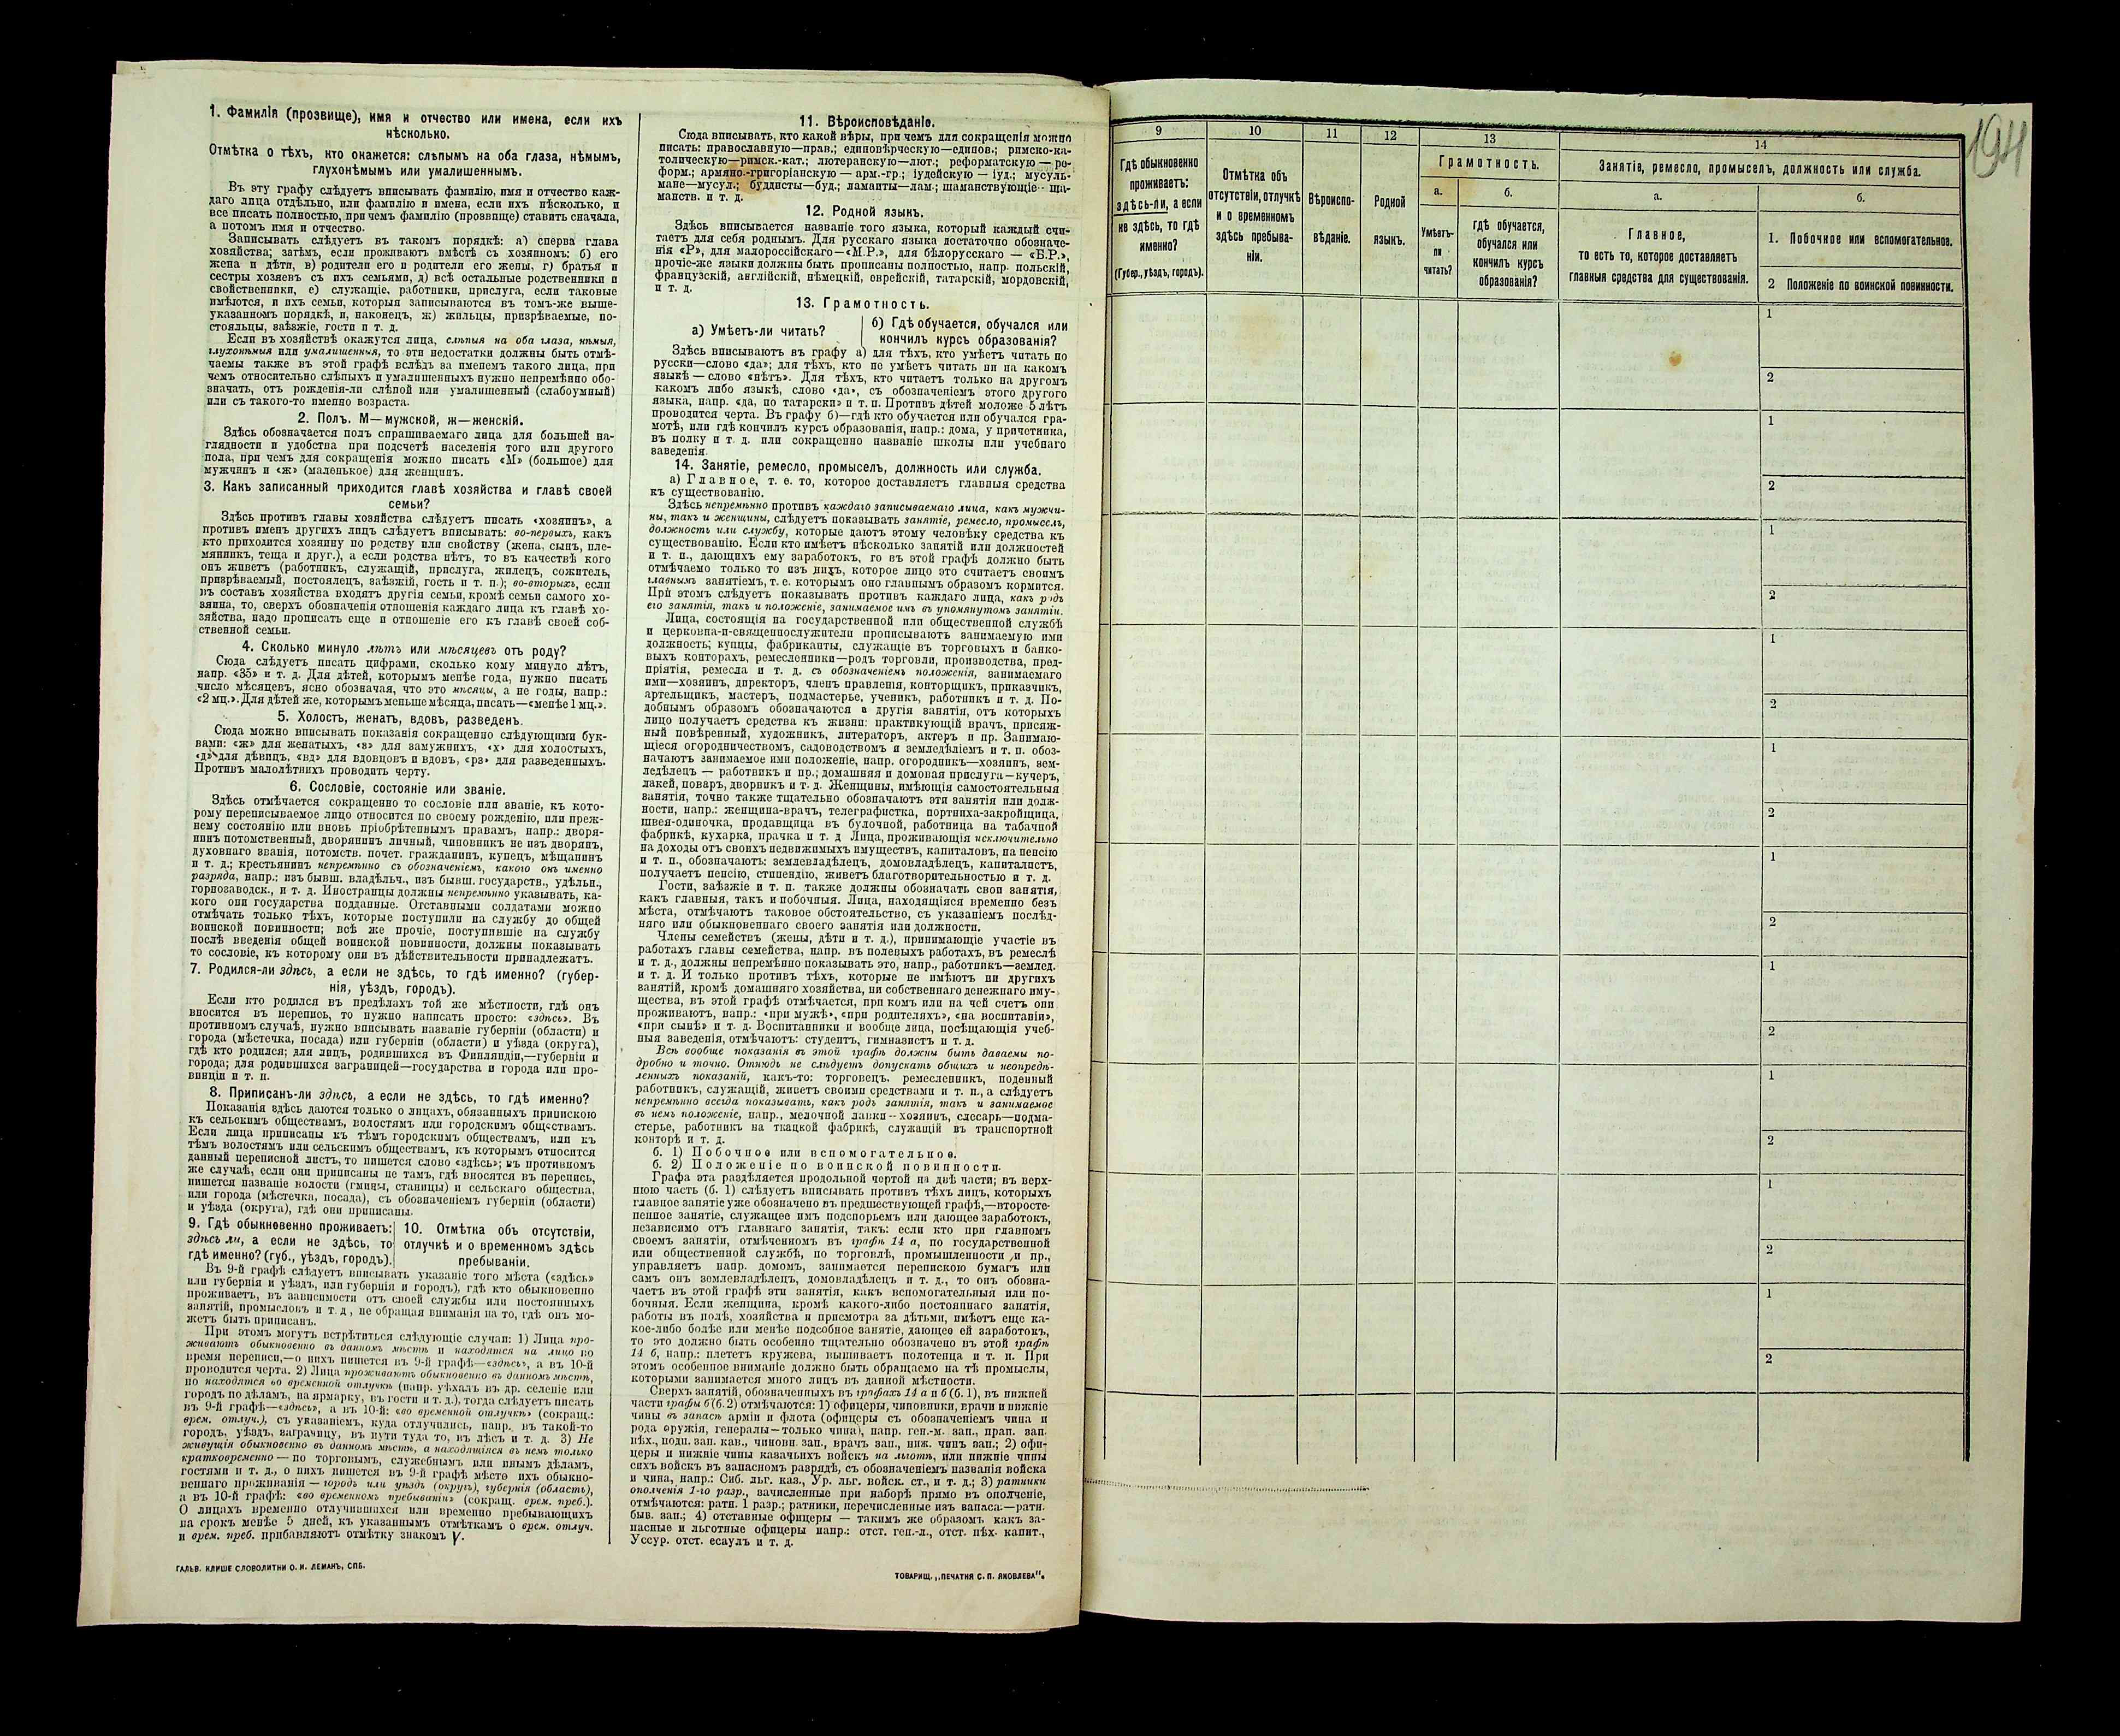 1. Фамилія (прозвище), имя и отчество или имена, если ихъ
нѣсколько.
Отмѣтка о тѣхъ, кто окажется: слѣпымъ на оба глаза, нѣмымъ,
глухонѣмымъ или умалишеннымъ.
Въ эту графу слѣдуетъ вписывать фамилію, имя и отчество каж-
даго лица отдѣльно, или фамилію и имена, если ихъ нѣсколько, и
все писать полностью, при чемъ фамилію (прозвище) ставить сначала,
а потомъ имя и отчество.
Записывать слѣдуетъ въ такомъ порядкѣ: а) сперва глава
хозяйства; затѣмъ, если проживаютъ вмѣстѣ съ хозяиномъ: б) его
жена и дѣти, в) родители его и родители его жены, г) братья и
сестры хозяевъ съ ихъ семьями, д) всѣ остальные родственники и
свойственники, е) служащіе, работники, прислуга, если таковые
имѣются, и ихъ семьи, которыя записываются въ томъ-же выше-
указанномъ порядкѣ, и, наконецъ, ж) жильцы, призрѣваемые, по-
стояльцы, заѣзжіе, гости и т. д.
Если въ хозяйствѣ окажутся лица, слѣпыя на оба глаза, нѣмыя,
глухонѣмыя или умалишенныя, то эти недостатки должны быть отмѣ-
чаемы также въ этой графѣ вслѣдъ за именемъ такого лица, при
чемъ относительно слѣпыхъ и умалишенныхъ нужно непремѣнно обо-
значать, отъ рожденія-ли слѣпой или умалишенный (слабоумный)
или съ такого-то именно возраста.
2. Полъ. М—мужской, ж—женскій.
Здѣсь обозначается полъ спрашиваемаго лица для большей на-
глядности и удобства при подсчетѣ населенія того или другого
пола, при чемъ для сокращенія можно писать «М» (большое) для
мужчинъ и «ж» (маленькое) для женщинъ.
3. Какъ записанный приходится главѣ хозяйства и главѣ своей
семьи?
Здѣсь противъ главы хозяйства слѣдуетъ писать «хозяинъ», а
противъ именъ другихъ лицъ слѣдуетъ вписывать: во-первыхъ, какъ
кто приходится хозяину по родству или свойству (жена, сынъ, пле-
мянникъ, теща и друг.), а если родства нѣтъ, то въ качествѣ кого
онъ живетъ (работникъ, служащій, прислуга, жилецъ, сожитель,
призрѣваемый, постоялецъ, заѣзжій, гость и т. п.); во-вторыхъ, если
въ составъ хозяйства входятъ другія семьи, кромѣ семьи самого хо-
зяина, то, сверхъ обозначенія отношенія каждаго лица къ главѣ хо-
зяйства, надо прописать еще и отношеніе его къ главѣ своей соб-
ственной семьи.
4. Сколько минуло лѣтъ или мѣсяцевъ отъ роду?
Сюда слѣдуетъ писать цифрами, сколько кому минуло лѣтъ,
напр. «35» и т. д. Для дѣтей, которымъ менѣе года, нужно писать
число мѣсяцевъ, ясно обозначая, что это мѣсяцы, а не годы, напр.:
«2 мц.». Для дѣтей же, которымъ меньше мѣсяца, писать—«менѣе 1 мц.».
5. Холостъ, женатъ, вдовъ, разведенъ.
Сюда можно вписывать показанія сокращенно слѣдующими бук-
вами: «ж» для женатыхъ, «з» для замужнихъ, «х» для холостыхъ,
«д» для дѣвицъ, «вд» для вдовцовъ и вдовъ, «рз» для разведенныхъ.
Противъ малолѣтнихъ проводить черту.
6. Сословіе, состояніе или званіе.
Здѣсь отмѣчается сокращенно то сословіе или званіе, къ кото-
рому переписываемое лицо относится по своему рожденію, или преж-
нему состоянію или вновь пріобрѣтеннымъ правамъ, напр.: дворя-
нинъ потомственный, дворянинъ личный, чиновникъ не изъ дворянъ,
духовнаго званія, потомств. почет. гражданинъ, купецъ, мѣщанинъ
и т. д.; крестьянинъ непремѣнно съ обозначеніемъ, какого онъ именно
разряда, напр.: изъ бывш. владѣльч., изъ бывш. государств., удѣльн.,
горнозаводск., и т. д. Иностранцы должны непремѣнно указывать, ка-
кого они государства подданные. Отставными солдатами можно
отмѣчать только тѣхъ, которые поступили на службу до общей
воинской повинности; всѣ же прочіе, поступившіе на службу
послѣ введенія общей воинской повинности, должны показывать
то сословіе, къ которому они въ дѣйствительности принадлежатъ.
7. Родился-ли здѣсь, а если не здѣсь, то гдѣ именно? (губер-
нія, уѣздъ, городъ).
Если кто родился въ предѣлахъ той же мѣстности, гдѣ онъ
вносится въ перепись, то нужно написать просто: «здѣсь». Въ
противномъ случаѣ, нужно вписывать названіе губерніи (области) и
города (мѣстечка, посада) или губерніи (области) и уѣзда (округа),
гдѣ кто родился; для лицъ, родившихся въ Финляндіи,—губерніи и
города; для родившихся заграницей—государства и города или про-
винціи и т. п.
8. Приписанъ-ли здѣсь, а если не здѣсь, то гдѣ именно?
Показанія здѣсь даются только о лицахъ, обязанныхъ припискою
къ сельскимъ обществамъ, волостямъ или городскимъ обществамъ.
Если лица приписаны къ тѣмъ городскимъ обществамъ, или къ
тѣмъ волостямъ или сельскимъ обществамъ, къ которымъ относится
данный переписной листъ, то пишется слово «здѣсь»; въ противномъ
же случаѣ, если они приписаны не тамъ, гдѣ вносятся въ перепись,
пишется названіе волости (гмины, станицы) и сельскаго общества,
или города (мѣстечка, посада), съ обозначеніемъ губерніи (области)
и уѣзда (округа), гдѣ они приписаны.
9. Гдѣ обыкновенно проживаетъ:
здѣсь ли, а если не здѣсь, то
гдѣ именно? (губ., уѣздъ, городъ).
10. Отмѣтка объ отсутствіи,
отлучкѣ и о временномъ здѣсь
пребываніи.
Въ 9-й графѣ слѣдуетъ вписывать указаніе того мѣста («здѣсь»
или губернія и уѣздъ, или губернія и городъ), гдѣ кто обыкновенно
проживаетъ, въ зависимости отъ своей службы или постоянныхъ
занятій, промысловъ и т. д., не обращая вниманія на то, гдѣ онъ мо-
жетъ быть приписанъ.
При этомъ могутъ встрѣтиться слѣдующіе случаи: 1) Лица про-
живаютъ обыкновенно въ данномъ мѣстѣ и находятся на лицо во
время переписи,—о нихъ пишется въ 9-й графѣ—«здѣсь», а въ 10-й
проводится черта. 2) Лица проживаютъ обыкновенно въ данномъ мѣстѣ,
но находятся во временной отлучкѣ (напр. уѣхалъ въ др. селеніе или
городъ по дѣламъ, на ярмарку, въ гости и т. д.), тогда слѣдуетъ писать
въ 9-й графѣ—«здѣсь», а въ 10-й: «во временной отлучкѣ» (сокращ.:
врем. отлуч.), съ указаніемъ, куда отлучились, напр. въ такой-то
городъ, уѣздъ, заграницу, въ пути туда то, въ лѣсъ и т. д. 3) Не
живущія обыкновенно въ данномъ мѣстѣ, а находящіяся въ немъ только
кратковременно—по торговымъ, служебнымъ или инымъ дѣламъ,
гостями и т. д., о нихъ пишется въ 9-й графѣ мѣсто ихъ обыкно-
веннаго проживанія—городъ или уѣздъ (округъ), губернія (область),
а въ 10-й графѣ: «во временномъ пребываніи» (сокращ. врем. преб.).
О лицахъ временно отлучившихся или временно пребывающихъ
на срокъ менѣе 5 дней, къ указаннымъ отмѣткамъ о врем. отлуч.
и врем. преб. прибавляютъ отмѣтку знакомъ V.
ГАЛЬВ. КЛИШЕ СЛОВОЛИТНИ О. И. ЛЕМАНЪ, СПБ.
11. Вѣроисповѣданіе.
Сюда вписывать, кто какой вѣры, при чемъ для сокращенія можно
писать: православную—прав.; единовѣрческую—единов.; римско-ка-
толическую—римск.-кат.; лютеранскую—лют.; реформатскую—ре-
форм.; армяно-григоріанскую—арм.-гр.; іудейскую—іуд.; мусуль-
мане—мусул.; буддисты—буд.; ламаиты—лам.; шаманствующіе—ша-
манств. и т. д.
12. Родной языкъ.
Здѣсь вписывается названіе того языка, который каждый счи-
таетъ для себя роднымъ. Для русскаго языка достаточно обозначе-
нія «Р», для малороссійскаго—«М.Р.», для бѣлорусскаго — «Б.Р.»,
прочіе-же языки должны быть прописаны полностью, напр. польскій,
французскій, англійскій, нѣмецкій, еврейскій, татарскій, мордовскій,
и т. д.
13. Грамотность.
а) Умѣетъ-ли читать?
б) Гдѣ обучается, обучался или
кончилъ курсъ образованія?
Здѣсь вписываютъ въ графу а) для тѣхъ, кто умѣетъ читать по
русски—слово «да»; для тѣхъ, кто не умѣетъ читать ни на какомъ
языкѣ—слово «нѣтъ». Для тѣхъ, кто читаетъ только на другомъ
какомъ либо языкѣ, слово «да», съ обозначеніемъ этого другого
языка, напр. «да, по татарски» и т. п. Противъ дѣтей моложе 5 лѣтъ
проводится черта. Въ графу б)—гдѣ кто обучается или обучался гра-
мотѣ, или гдѣ кончилъ курсъ образованія, напр.: дома, у причетника,
въ полку и т. д. или сокращенно названіе школы или учебнаго
заведенія.
14. Занятіе, ремесло, промыселъ, должность или служба.
а) Главное, т. е. то, которое доставляетъ главныя средства
къ существованію.
Здѣсь непремѣнно противъ каждаго записываемаго лица, какъ мужчи-
ны, такъ и женщины, слѣдуетъ показывать занятіе, ремесло, промыселъ,
должность или службу, которые даютъ этому человѣку средства къ
существованію. Если кто имѣетъ нѣсколько занятій или должностей
и т. п., дающихъ ему заработокъ, то въ этой графѣ должно быть
отмѣчаемо только то изъ нихъ, которое лицо это считаетъ своимъ
главнымъ занятіемъ, т. е. которымъ оно главнымъ образомъ кормится.
При этомъ слѣдуетъ показывать противъ каждаго лица, какъ родъ
его занятія, такъ и положеніе, занимаемое имъ въ упомянутомъ занятіи.
Лица, состоящія на государственной или общественной службѣ
и церковно-и-священнослужители прописываютъ занимаемую ими
должность; купцы, фабриканты, служащіе въ торговыхъ и банко-
выхъ конторахъ, ремесленники—родъ торговли, производства, пред-
пріятія, ремесла и т. д. съ обозначеніемъ положенія, занимаемаго
ими—хозяинъ, директоръ, членъ правленія, конторщикъ, приказчикъ,
артельщикъ, мастеръ, подмастерье, ученикъ, работникъ и т. д. По-
добнымъ образомъ обозначаются и другія занятія, отъ которыхъ
лицо получаетъ средства къ жизни: практикующій врачъ, присяж-
ный повѣренный, художникъ, литераторъ, актеръ и пр. Занимаю-
щіеся огородничествомъ, садоводствомъ и земледѣліемъ и т. п. обоз-
начаютъ занимаемое ими положеніе, напр. огородникъ—хозяинъ, зем-
ледѣлецъ — работникъ и пр.; домашняя и домовая прислуга—кучеръ,
лакей, поваръ, дворникъ и т. д. Женщины, имѣющія самостоятельныя
занятія, точно также тщательно обозначаютъ эти занятія или долж-
ности, напр.: женщина-врачъ, телеграфистка, портниха-закройщица,
швея-одиночка, продавщица въ булочной, работница на табачной
фабрикѣ, кухарка, прачка и т. д. Лица, проживающія исключительно
на доходы отъ своихъ недвижимыхъ имуществъ, капиталовъ, на пенсію
и т. п., обозначаютъ: землевладѣлецъ, домовладѣлецъ, капиталистъ,
получаетъ пенсію, стипендію, живетъ благотворительностью и т. д.
Гости, заѣзжіе и т. п. также должны обозначать свои занятія,
какъ главныя, такъ и побочныя. Лица, находящіяся временно безъ
мѣста, отмѣчаютъ таковое обстоятельство, съ указаніемъ послѣд-
няго или обыкновеннаго своего занятія или должности.
Члены семействъ (жены, дѣти и т. д.), принимающіе участіе въ
работахъ главы семейства, напр. въ полевыхъ работахъ, въ ремеслѣ
и т. д., должны непремѣнно показывать это, напр., работникъ—землед.
и т. д. И только противъ тѣхъ, которые не имѣютъ ни другихъ
занятій, кромѣ домашняго хозяйства, ни собственнаго денежнаго иму-
щества, въ этой графѣ отмѣчается, при комъ или на чей счетъ они
проживаютъ, напр.: «при мужѣ», «при родителяхъ», «на воспитаніи»,
«при сынѣ» и т. д. Воспитанники и вообще лица, посѣщающія учеб-
ныя заведенія, отмѣчаютъ: студентъ, гимназистъ и т. д.
Всѣ вообще показанія въ этой графѣ должны быть даваемы по-
дробно и точно. Отнюдь не слѣдуетъ допускать общихъ и неопредѣ-
ленныхъ показаній, какъ-то: торговецъ, ремесленникъ, поденный
работникъ, служащій, живетъ своими средствами и т. п., а слѣдуетъ
непремѣнно всегда показывать, какъ родъ занятія, такъ и занимаемое
въ немъ положеніе, напр., мелочной лавки—хозяинъ, слесарь—подма-
стерье, работникъ на ткацкой фабрикѣ, служащій въ транспортной
конторѣ и т. д.
б. 1) Побочное или вспомогательное.
б. 2) Положеніе по воинской повинности.
Графа эта раздѣляется продольной чертой на двѣ части; въ верх-
нюю часть (б. 1) слѣдуетъ вписывать противъ тѣхъ лицъ, которыхъ
главное занятіе уже обозначено въ предшествующей графѣ,—второсте-
пенное занятіе, служащее имъ подспорьемъ или дающее заработокъ,
независимо отъ главнаго занятія, такъ: если кто при главномъ
своемъ занятіи, отмѣченномъ въ графѣ 14 а, по государственной
или общественной службѣ, по торговлѣ, промышленности и пр.,
управляетъ напр. домомъ, занимается перепискою бумагъ или
самъ онъ землевладѣлецъ, домовладѣлецъ и т. д., то онъ обозна-
чаетъ въ этой графѣ эти занятія, какъ вспомогательныя или по-
бочныя. Если женщина, кромѣ какого-либо постояннаго занятія,
работы въ полѣ, хозяйства и присмотра за дѣтьми, имѣетъ еще ка-
кое-либо болѣе или менѣе подсобное занятіе, дающее ей заработокъ,
то это должно быть особенно тщательно обозначено въ этой графѣ
14 б, напр.: плететъ кружева, вышиваетъ полотенца и т. п. При
этомъ особенное вниманіе должно быть обращаемо на тѣ промыслы,
которыми занимается много лицъ въ данной мѣстности.
Сверхъ занятій, обозначенныхъ въ графахъ 14 а и б (б. 1), въ нижней
части графы б (б. 2) отмѣчаются: 1) офицеры, чиновники, врачи и нижніе
чины въ запасѣ арміи и флота (офицеры съ обозначеніемъ чина и
рода оружія, генералы—только чина), напр. ген.-м. зап., прап. зап.
пѣх., подп. зап. кав., чиновн. зап., врачъ зап., ниж. чинъ зап.; 2) офи-
церы и нижніе чины казачьихъ войскъ на льготѣ, или нижніе чины
сихъ войскъ въ запасномъ разрядѣ, съ обозначеніемъ названія войска
и чина, напр.: Сиб. льг. каз., Ур. льг. войск. ст., и т. д.; 3) ратники
ополченія 1-го разр., зачисленные при наборѣ прямо въ ополченіе,
отмѣчаются: ратн. 1 разр.; ратники, перечисленные изъ запаса:—ратн.
быв. зап.; 4) отставные офицеры — такимъ же образомъ какъ за-
пасные и льготные офицеры напр.: отст. ген.-л., отст. пѣх. капит.,
Уссур. отст. есаулъ и т. д.
ТОВАРИЩ. „ПЕЧАТНЯ С. П. ЯКОВЛЕВА".
194
9
10
11
12
13
14
Гдѣ обыкновенно
проживаетъ:
здѣсь-ли, а если
не здѣсь, то гдѣ
именно?
(Губер., уѣздъ, городъ).
Отмѣтка объ
отсутствіи, отлучкѣ
и о временномъ
здѣсь пребыва-
ніи.
Вѣроиспо-
вѣданіе.
Родной
языкъ.
Грамотность.
а.
Умѣетъ-
ли
читать?
б.
гдѣ обучается,
обучался или
кончилъ курсъ
образованія?
Занятіе, ремесло, промыселъ, должность или служба.
а.
Главное,
то есть то, которое доставляетъ
главныя средства для существованія.
б.
1. Побочное или вспомогательное.
2 Положеніе по воинской повинности.
1
2
1
2
1
2
1
2
1
2
1
2
1
2
1
2
1
2
1
2